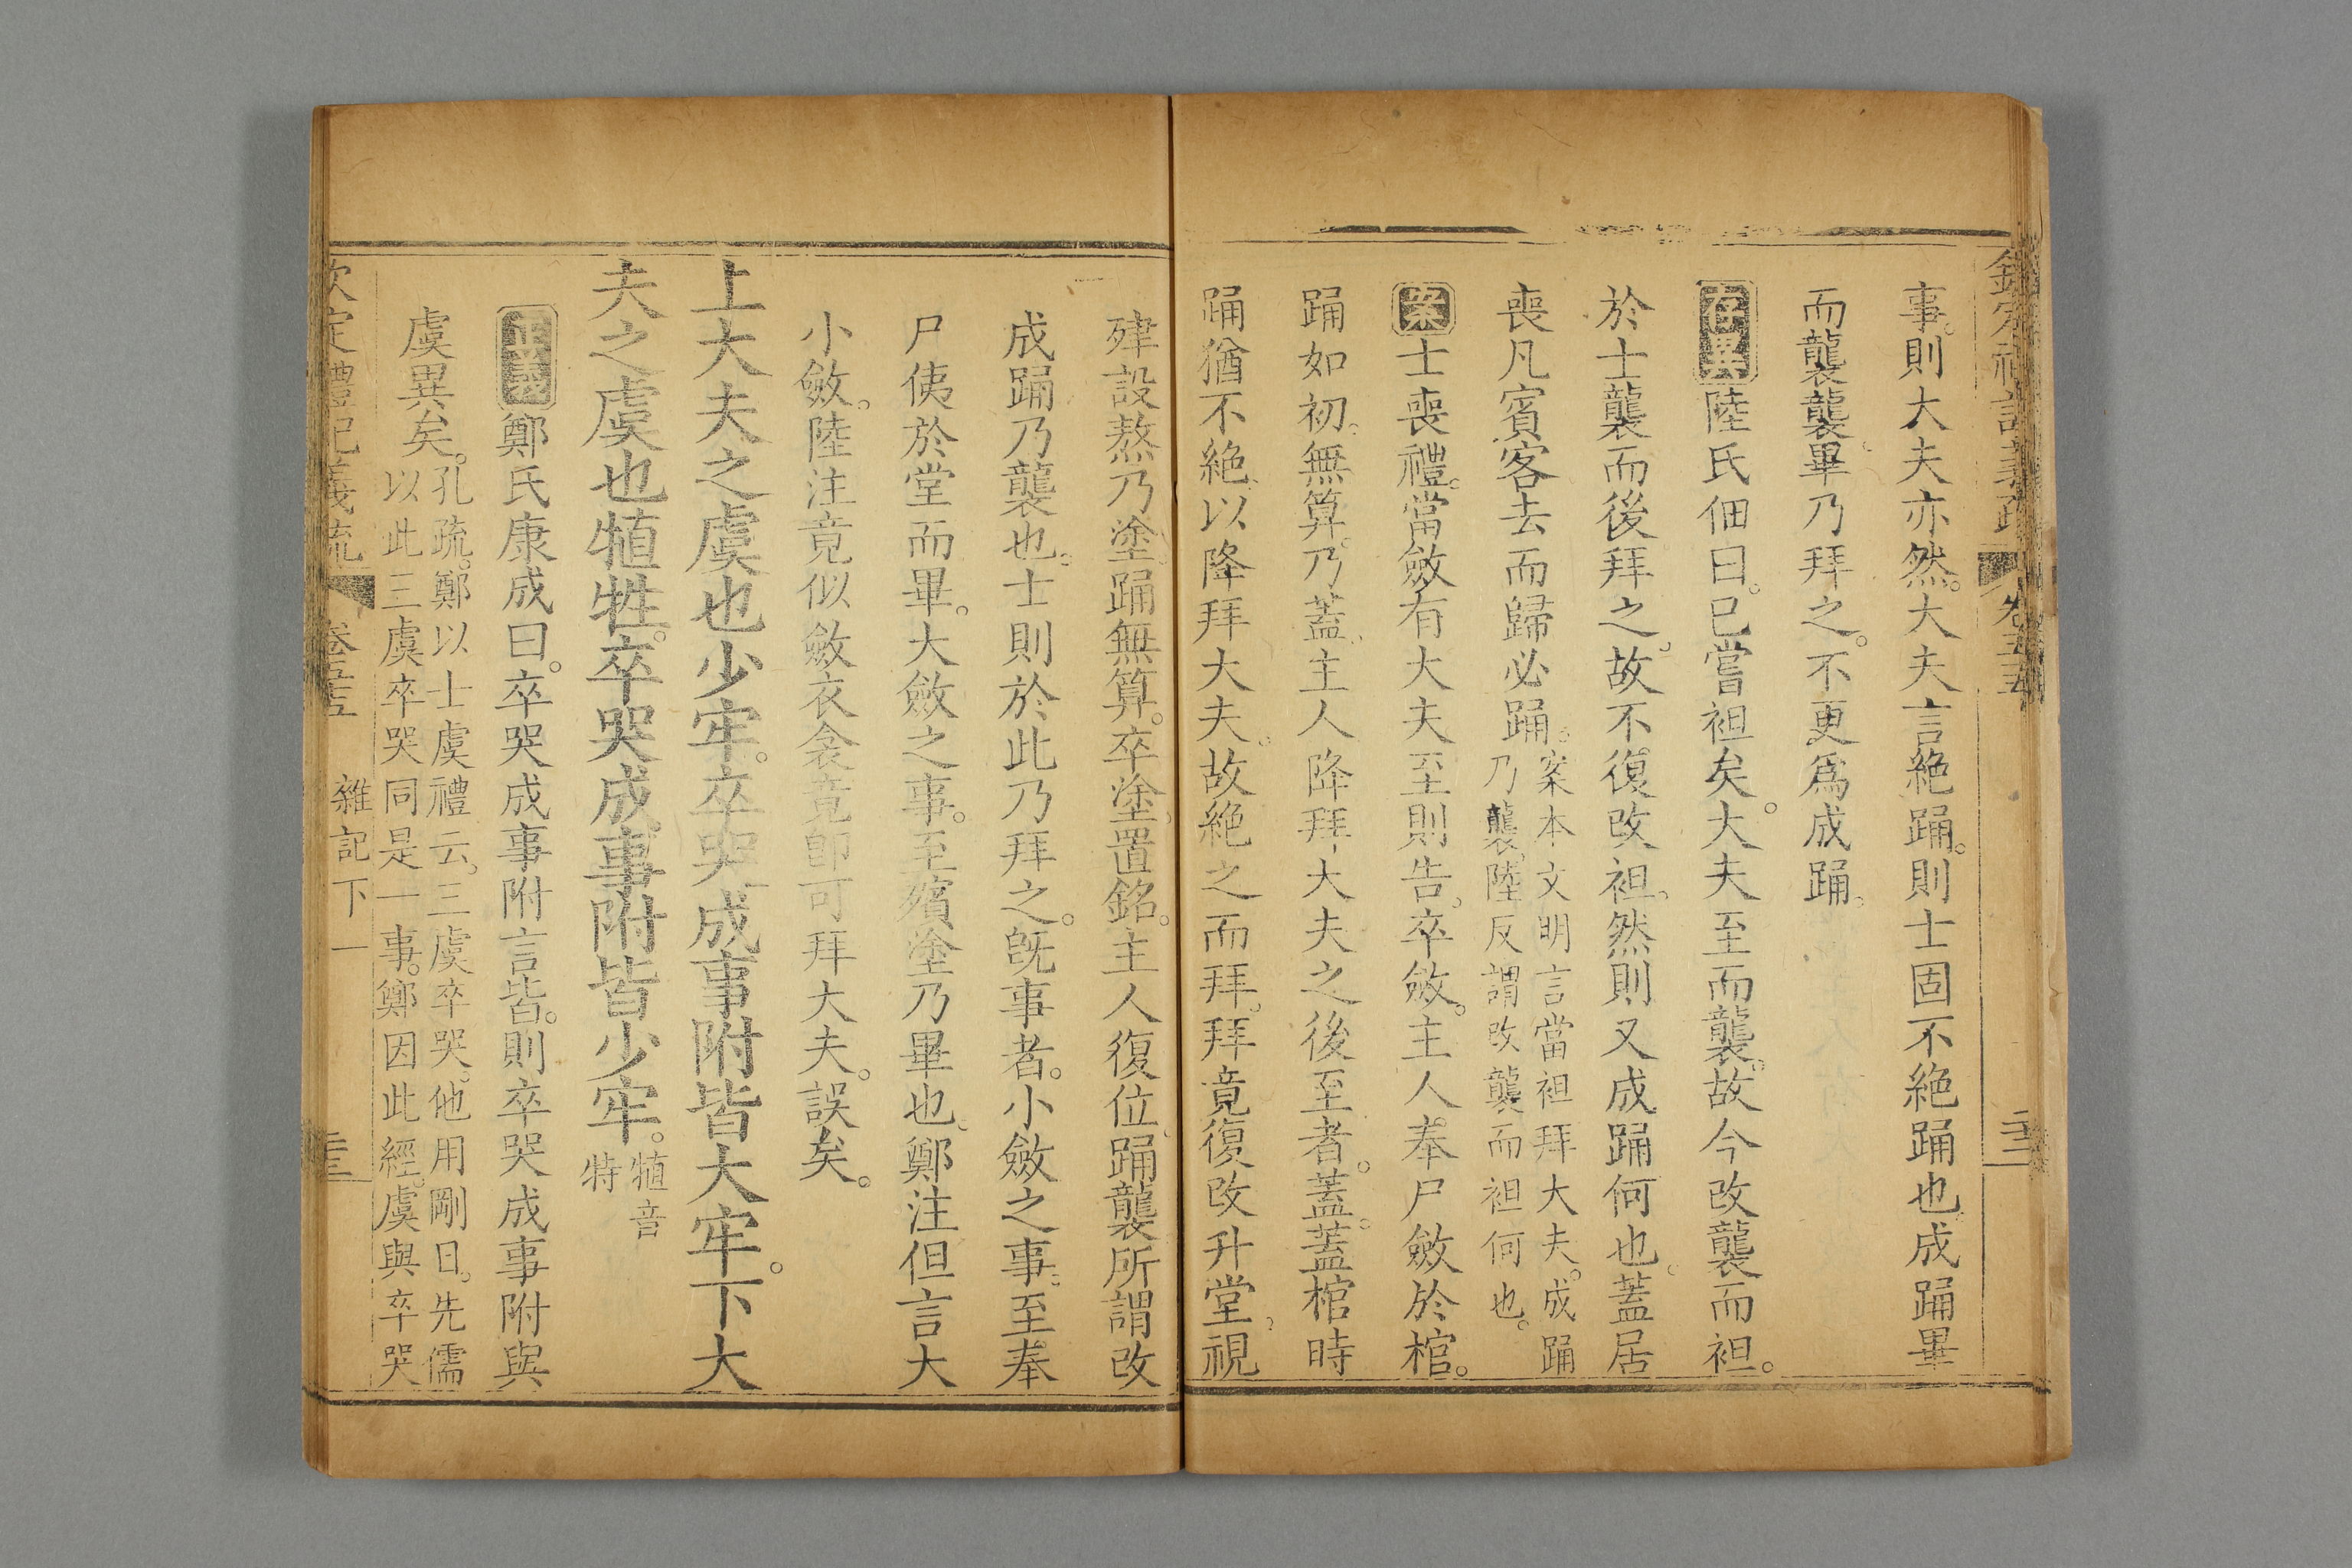 欽定禮記義疏 卷五十五
事。則大夫亦然。大夫言絶踊。則士固不絶踊也。成踊畢
而襲。襲畢乃拜之。不更爲成踊。
存異 陸氏佃曰。已嘗袒矣。大夫至而襲。故今改襲而袒。
於士襲而後拜之。故不復改袒。然則又成踊何也。蓋居
喪凡賓客去而歸必踊。案本文明言當袒拜大夫。成踊
乃襲。陸反謂改襲而袒何也。
案 士喪禮。當斂有大夫至則告。卒斂。主人奉尸斂於棺。
踊如初。無算。乃蓋。主人降拜大夫之後至者。蓋。蓋棺時
踊猶不絶。以降拜大夫。故絶之而拜。拜竟復改升堂。視
肂設熬乃塗。踊無算。卒塗。置銘。主人復位。踊襲所謂改
成踊乃襲也。士則於此乃拜之。旣事者。小斂之事。至奉
尸侇於堂而畢。大斂之事。至殯塗乃畢也。鄭注但言大
小斂。陸注竟似斂衣衾竟卽可拜大夫。誤矣。
上大夫之虞也少牢。卒哭成事附皆大牢。下大
夫之虞也犆牲。卒哭成事附皆少牢。犆音
特
正義 鄭氏康成曰。卒哭成事附言皆。則卒哭成事附與
虞異矣。孔疏。鄭以士虞禮云。三虞卒哭。他用剛日。先儒
以此三虞卒哭同是一事。鄭因此經。虞與卒哭
欽定禮記義疏 卷五十五 雜記下一